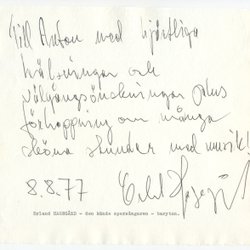 Till Anton med hjärtliga
hälsningar och
välgångsönskningar plus
förhoppning om många
sköna stunder med musik!
8.8.77 Erland Hagegård
Erland HAGEGÅRD - den kände operasångaren - baryton.